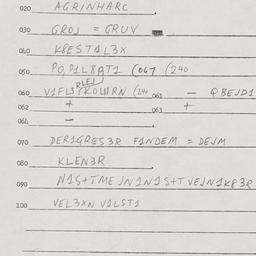 020 AGRINHARC
030 GROJ = GRUV
040 K8EST1L3X
050 PO,P1L8AT1 (067 (240
060 (240 061 — QBEJD1
062 + 063 +
064 —
070 DER1GRES3R F1NDEM = DEJM
080 KLEN3R
090 N1S+TME JN1N1S+T VEJN1K83R
100 VEL3XN V1LST1